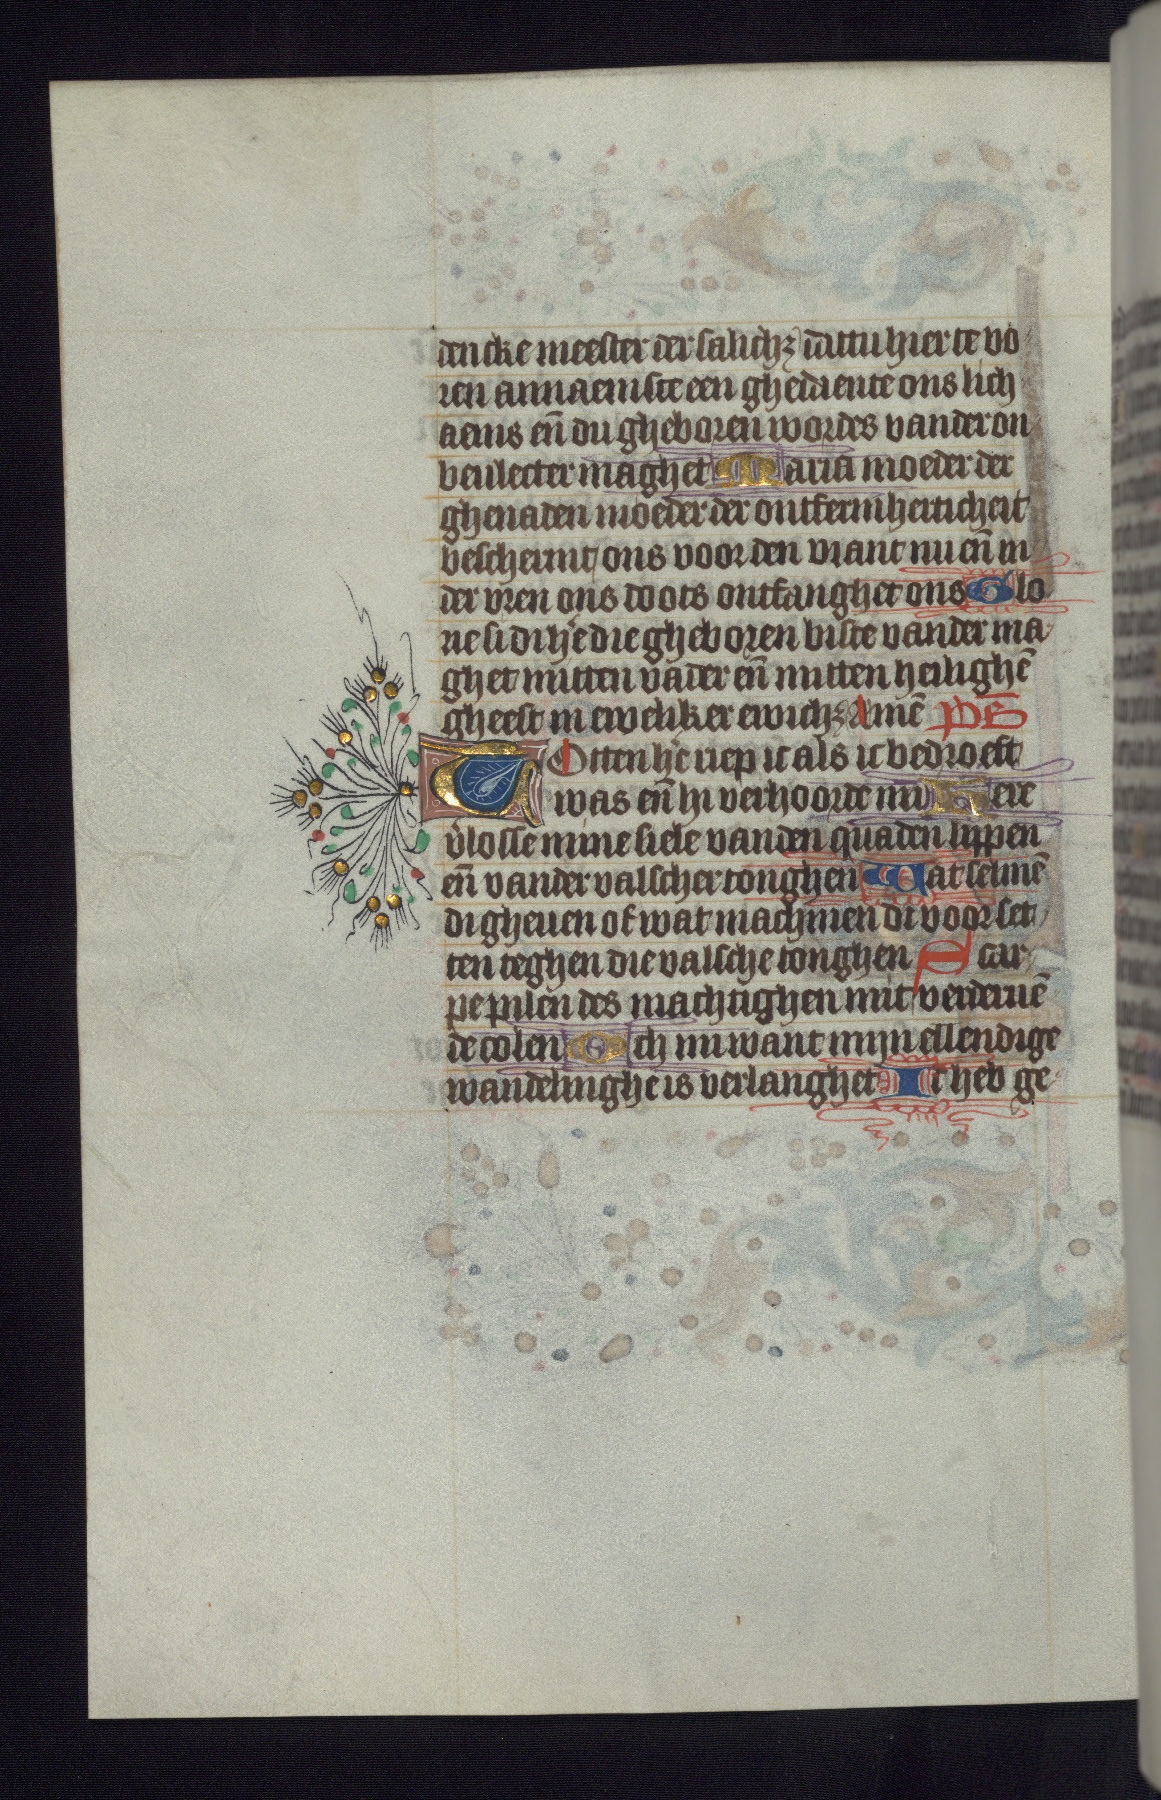 dencke meester der salichꝫ dattu hier te vo
ren annaemste een ghedaente ons lich
aems en̄ du gheboren wordes vander on
bevlecter maghet Maria moeder der
ghenaden moeder der ontfermherticheit
beschermt ons voor den viant nu en̄ in
der vren ons doots ontfanghet ons Glo
rie si di he̅ die gheboren biste vander ma
ghet mitten vader en̄ mitten heilighe̅
gheest in eweliker ewichꝫ Ame̅ ps̅
Totten he̅ riep ic als ic bedroeft
was en̄ hi verhoorde mi Here
v̓losse mine siele vanden quaden lippen
en̄ vander valscher tonghen Wat selme̅
di gheuen of wat machmen di voor set
ten teghen die valsche tonghen Scar
pe pilen des machtighen mit verderue̅
de colen Och mi want mijn ellendige
wandelinghe is verlanghet Ic heb ge